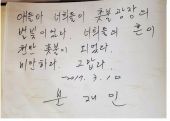 얘들아 너희들이 촛불 광장의
별빛이었다. 너희들의 혼이
천만 촛불이 되었다.
미안하다. 고맙다.
2017. 3. 10
문 재 인